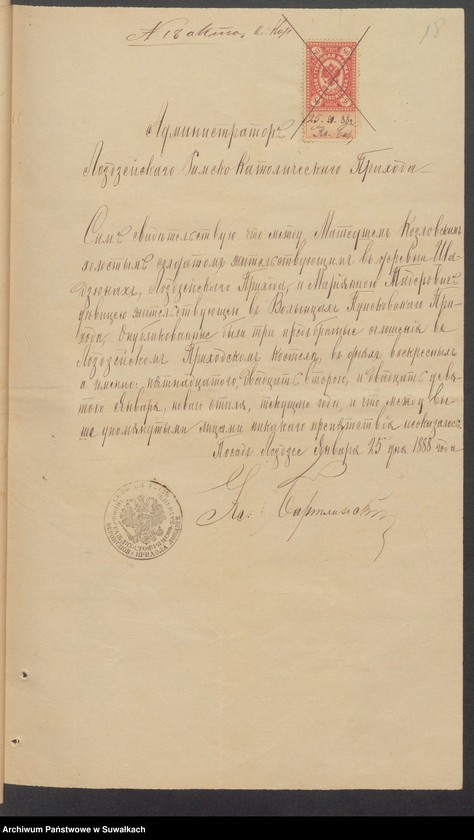 18
Администраторъ
Лоздзейскаго Римско-Католическаго Прихода
Симъ свидѣтельствую что между Матеушемъ Козловскимъ
холостымъ солдатомъ жительствующимъ въ деревни
Лоздзейскаго Прихода, и Маріянною
дѣвицею жительствующею въ Пунсковскаго При-
хода. Опубликованные были три оглашенія въ
Лоздзейскомъ Приходскомъ костелѣ, во дняхъ воскресныхъ
а именно: пятнадцатого, двадцать второго, и двадцать девя-
того Января, новаго стиля, текущаго года, и что между вы-
ше упомянутыми лицами никакого препятствія неоказалось.
Посадъ Лоздзее Января 25 дня 1888 года
Archiwum Państwowe w Suwałkach